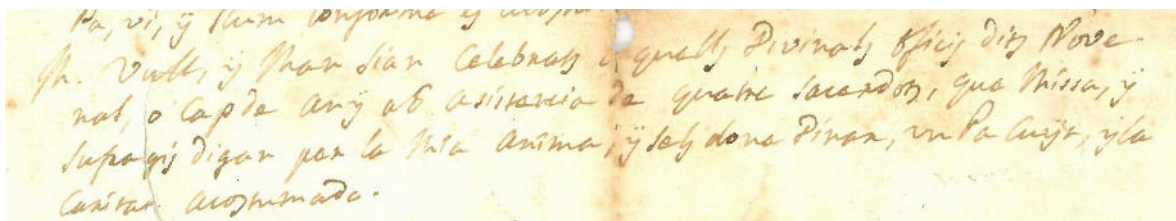 Pa, vi, y llum conforme es acostu
Vull, y man sian Celebrats aquells Divinals Officis dits Nove-
nal, o Cap de any ab asistencia de quatre sacerdots, que Missa, y
sufragis digan per la Mia Anima, y sels dona Dinar, un Pa Cuyt, y la
Caritat acostumada.